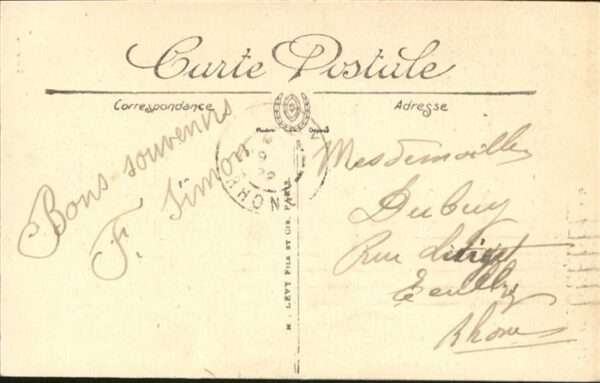 Carte Postale
Correspondance
Adresse
Bons souvenirs
F. Simon
Mesdemoiselles
Dubuy
Rue
Ecully
Rhône
M. LÉVY FILS ET CIE. PARIS